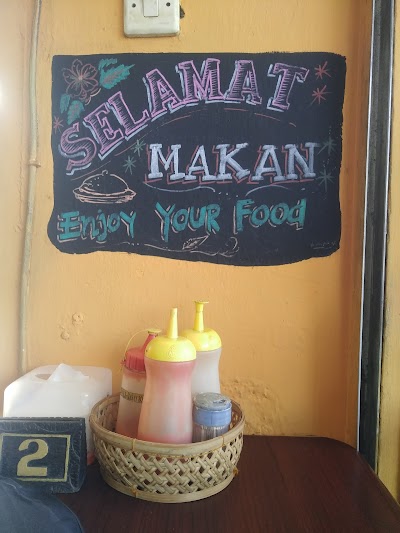 SELAMAT
MAKAN
Enjoy Your Food
2